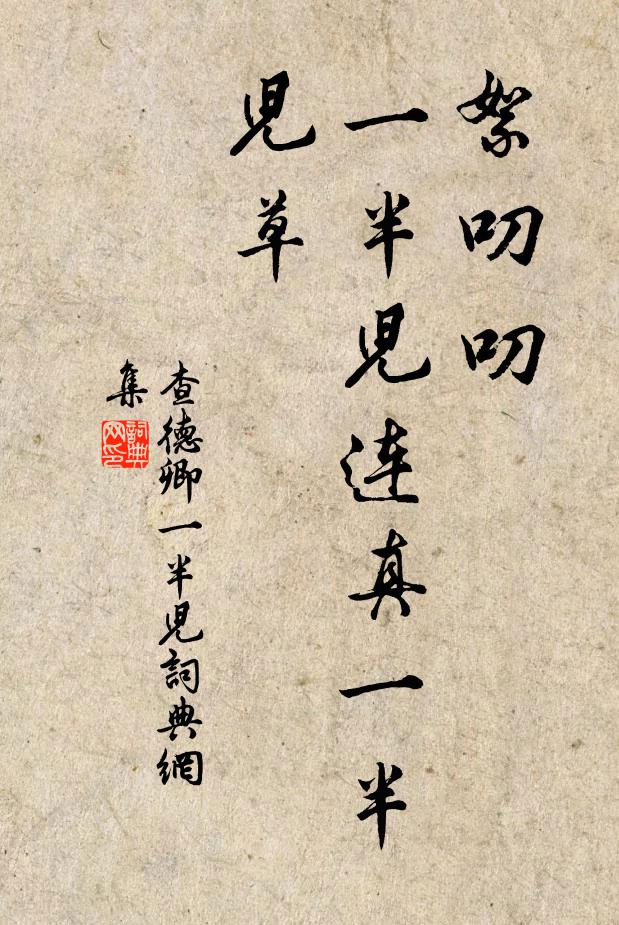 絮叨叨
一半兒連真一半
兒草
查德卿一半兒詞典網
集
詞典
网印